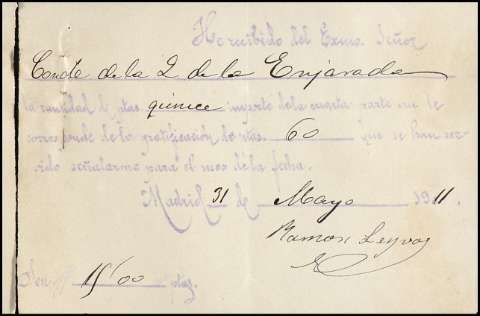 He recibido del Exmo. Señor
Conde de la Q de la Enjarada
la cantidad de ptas. quince importe de la cuarta parte que le
corresponde de la gratificación de ptas. 60 que se han ser-
vido señalarme para el mes de la fecha.
Madrid 31 de Mayo 1911.
Ramon Leyva
Son 15'00 ptas.